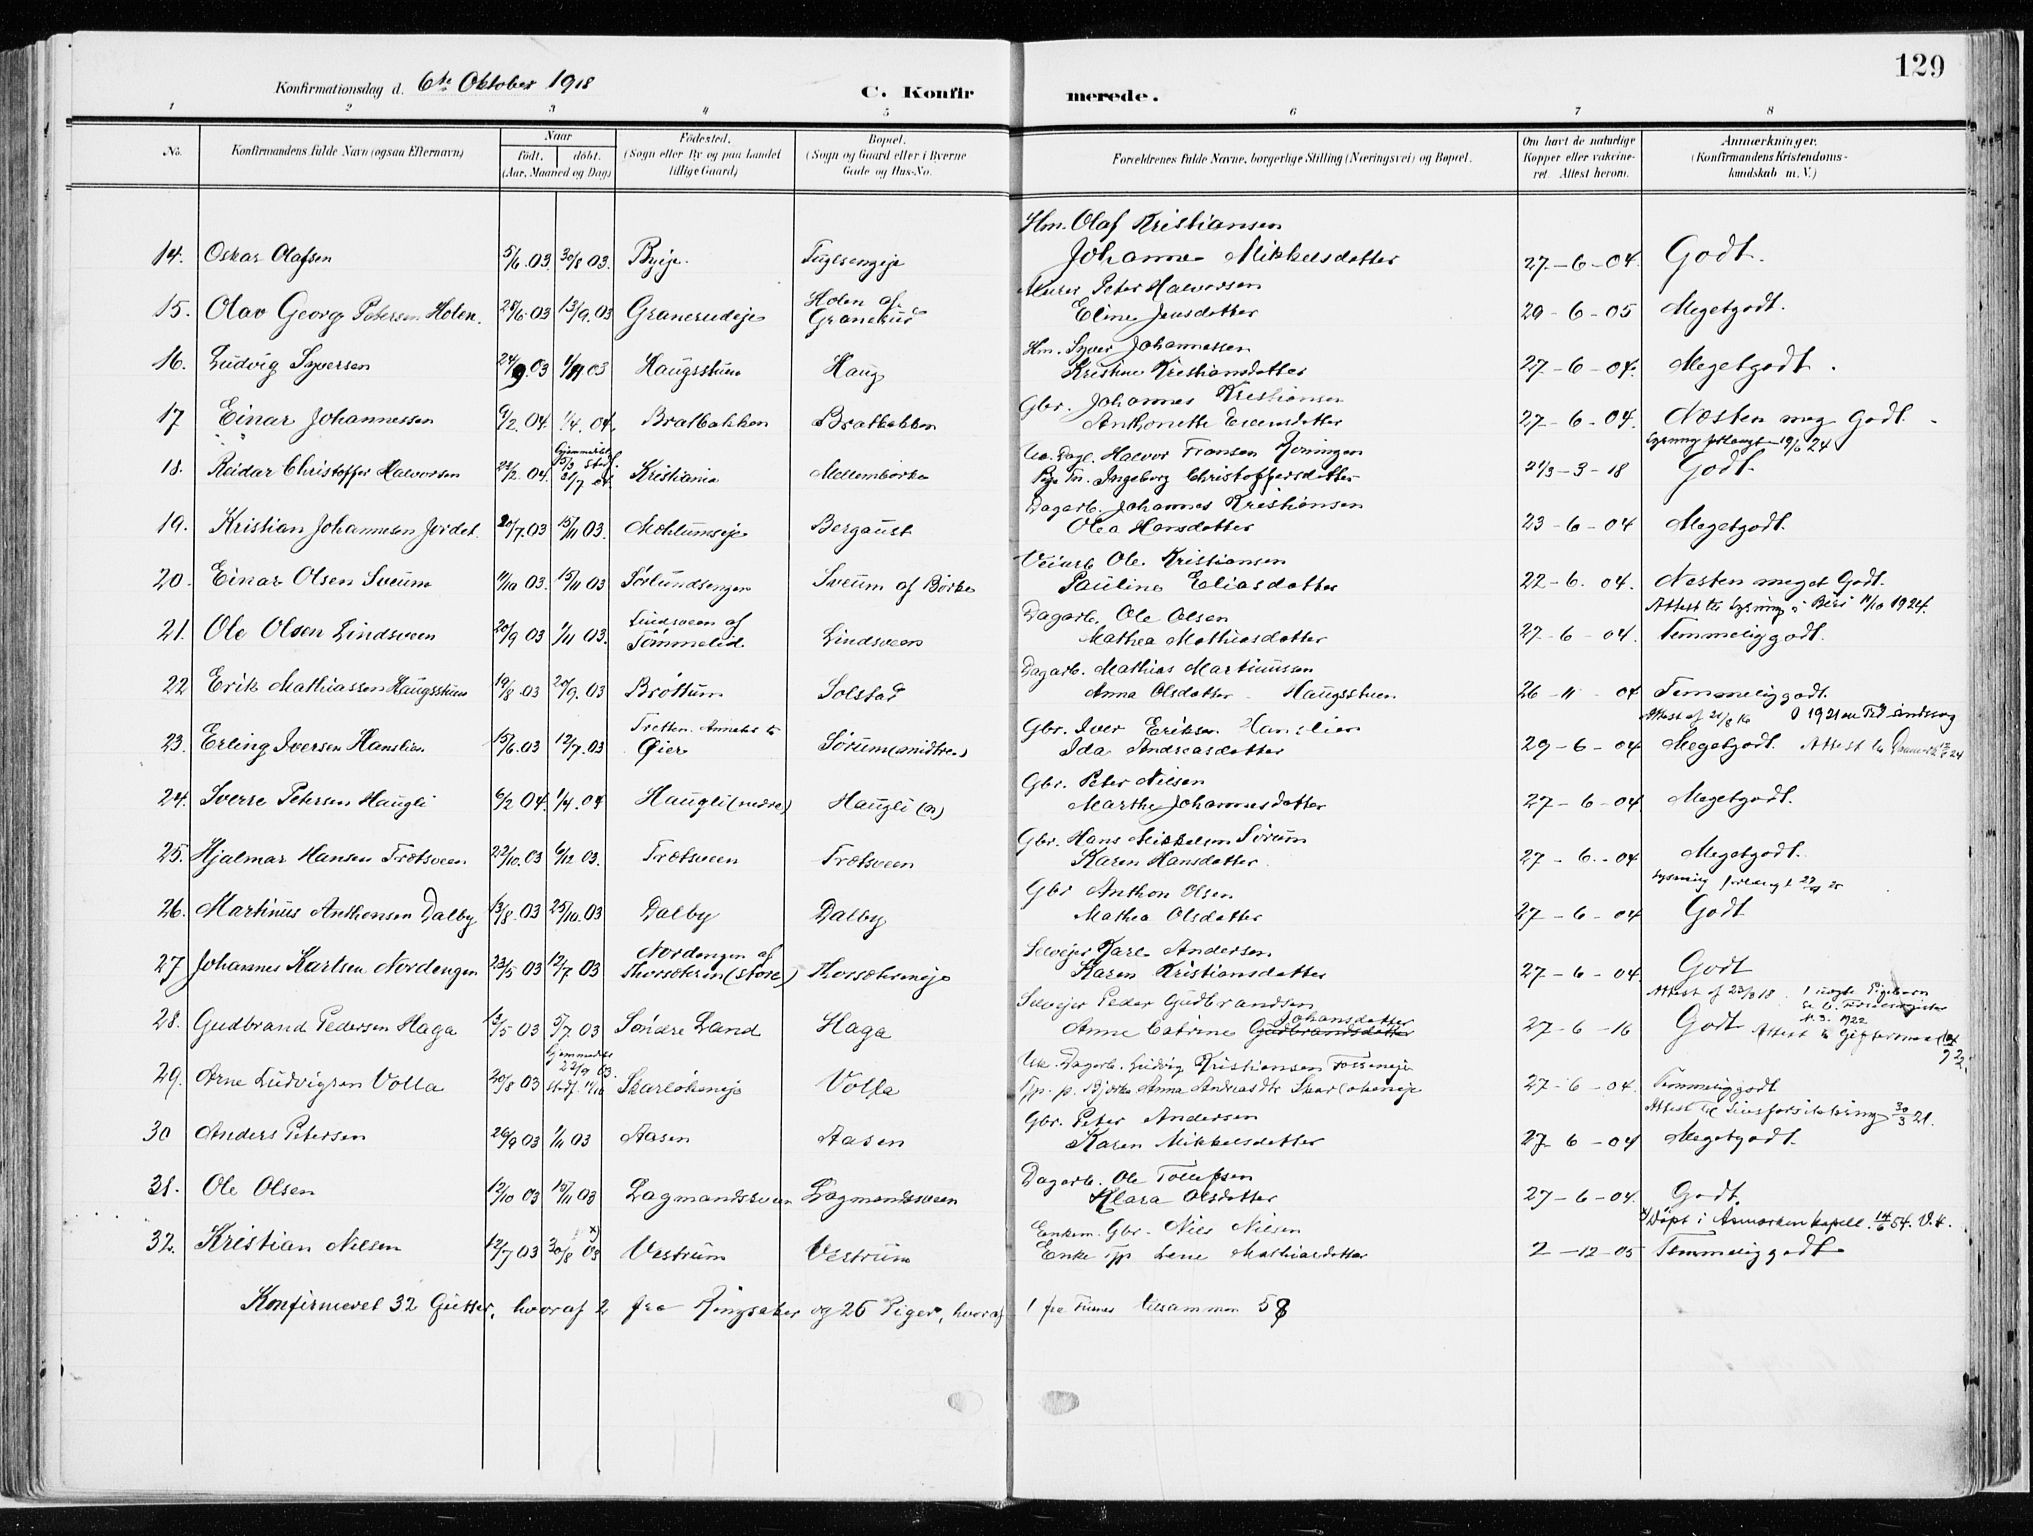 129
Konfirmationsdag d. 6te Oktober 1918 C. Konfirmerede.
1 2 3 4 5 6 7 8
No. Konfirmandens fulde Navn (ogsaa Efternavn) Naar født. døbt. (Aar, Maaned og Dag) Fødested. (Sogn eller By og paa Landet tillige Gaard) Bopæl. (Sogn og Gaard eller i Byerne Gade og Hus-No. Forældrenes fulde Navne, borgerlige Stilling (Næringsvei) og Bopæl. Om havt de naturlige Kopper eller vakcineret. Attest herom. Anmærkninger. (Konfirmandens Kristendomskundskab m. V.)
Hm. Olaf Kristiansen
14. Oskar Olafsen 5/6.03 30/8 03. Byeje. Johanne Mikkelsdatter 27-6-04. Godt.
Murer Peter Halvorsen
15. Olav Georg Petersen Holen. 28/6.03 13/9.03 Graneru­deje Holen af Granerud Eline Jensdatter 29-6-05 Megetgodt.
Hm. Syver Johannessen
16. Ludvig Syversen 24/9.03 1/11 03 Haugsstuen Haug Kristine Kristiansdatter 27-6-04. Megetgodt.
Gbr. Johannes Kristiansen
17 Einar Johannessen 9/2.04. 1/4.04. Bratbakken Bratbakken Anthonette Evensdatter 27-6-04. Næsten meg Godt.
Lysning forlangt 19/6 24
Halvor Fransen
18. Reidar Christoffer Halvorsen 22/2.04. Kristiania Mellembørke Ingeborg Christoffersdatter 21/3-3-18 Godt
Dagarb. Johannes Kristiansen
19. Kristian Johannesen Jordet. 20/7.03 15/11 03. Mæhlumseje Bergaust Olea Hansdatter 23-6-04 Megetgodt.
Veiarb Ole Kristiansen
20. Einar Olsen Sveum 9/10 03. 15/11 03 Sørlundsengen Sveum af Børke Pauline Eliasdatter 22-6.04. Næsten meget Godt.
Attest til Lysning i Biri 11/10 1924.
Dagarb. Ole Olsen
21. Ole Olsen Lindsveen 20/9 03 1/11 03. Lindsveen af Tømmelid Lindsveen Mathea Mathiasdatter 27-6-04. Temmeliggodt.
Dagarb. Mathias Martinussen
22 Erik Mathiassen Haugsstuen 19/8.03 20/9.03 Brøttum Solstad Anna Olsdatter - Haugsstuen. 26-11-04 Temmeliggodt.
Gbr. Iver Eriksen Hanslien
23. Erling Iversen Hanslien 15/6.03 12/7.03 Tretten Øier Sørum (midtre) Ida Andreasdatter 29-6-04 Megetgodt.
Gbr. Peter Nilsen
24. Sverre Petersen Haugli 6/2 04. 1/4.04 Haugli (nedre) Haugli (n) Marthe Johannesdatter 27-6-04 Megetgodt.
Gbr. Hans Mikkelsen Sørum
25. Hjalmar Hansen Trætsveen 22/10.03 6/12 03. Trætsveen Trætsveen Karen Hansdatter 27-6-04 Megetgodt.
Lysning forlangt
Gbr Anthon Olsen
26. Martinus Anthonsen Dalby 13/8.03 25/10.03 Dalby Dalby Mathea Olsdatter 27-6-04 Godt
Selvejer Karl Andersen
27 Johannes Karlsen Nordengen 23/5 03 12/7 03 Nordengen af Thorsæteren (store) Thorsætereneje Karen Kristiansdatter 27-6-04. Godt
Attest af 23/3 18.
Selvejer Peder Gudbrandsen
28. Gudbrand Pedersen Haga 13/5 03 5/7 03 Søndre Land Haga Anne Catrine Gudbrandsdatter Johansdatter 27-6-16 Godt
Dagarb. Ludvig Kristiansen
29. Arne Ludvigsen Volla 20/8 03 Hjemmedøbt 22/9 03. Skarløkeneje Volla Anna Andreasdtr 27-6-04. Temmeliggodt
Attest til 30/3 21.
Gbr. Peter Andersen
30 Anders Petersen 26/9 03 1/11 03 Aasen Aasen Karen Mikkelsdatter 27-6-04 Megetgodt.
Dagarb. Ole Tollefsen
31. Ole Olsen 12/10 03 15/11 03 Lagmandssveen Lagmandssveen Klara Olsdatter 27-6-04. Godt.
x) Døpt i Åsmarken kapell. 14/6 54.
Enkem. Gbr. Nils Nilsen
32. Kristian Nilsen 12/7 03 30/8 03 x) Vestrum Vestrum Enke Lene Mathiasdatter 2-12-05 Temmeliggodt
Konfirmeret 32 Gutter, hvoraf 2 fra Ringsaker og 26 Piger, hvoraf 1 fra Furnes tilsammen 58